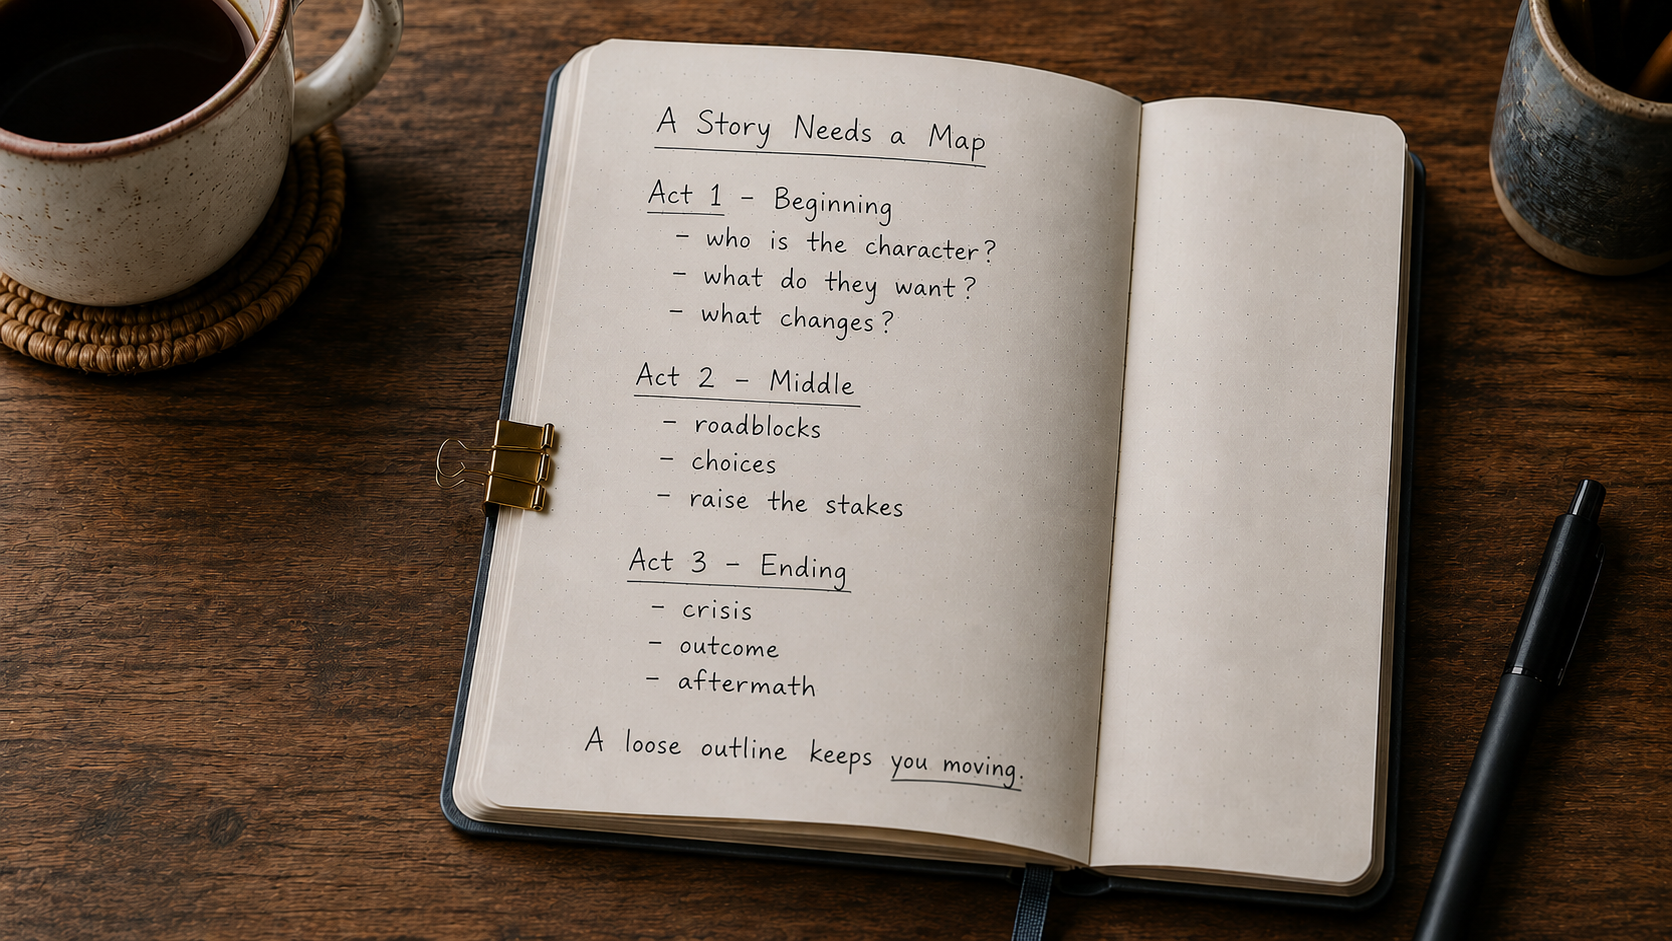 A Story Needs a Map
Act 1 – Beginning
– who is the character?
– what do they want?
– what changes?
Act 2 – Middle
– roadblocks
– choices
– raise the stakes
Act 3 – Ending
– crisis
– outcome
– aftermath
A loose outline keeps you moving.